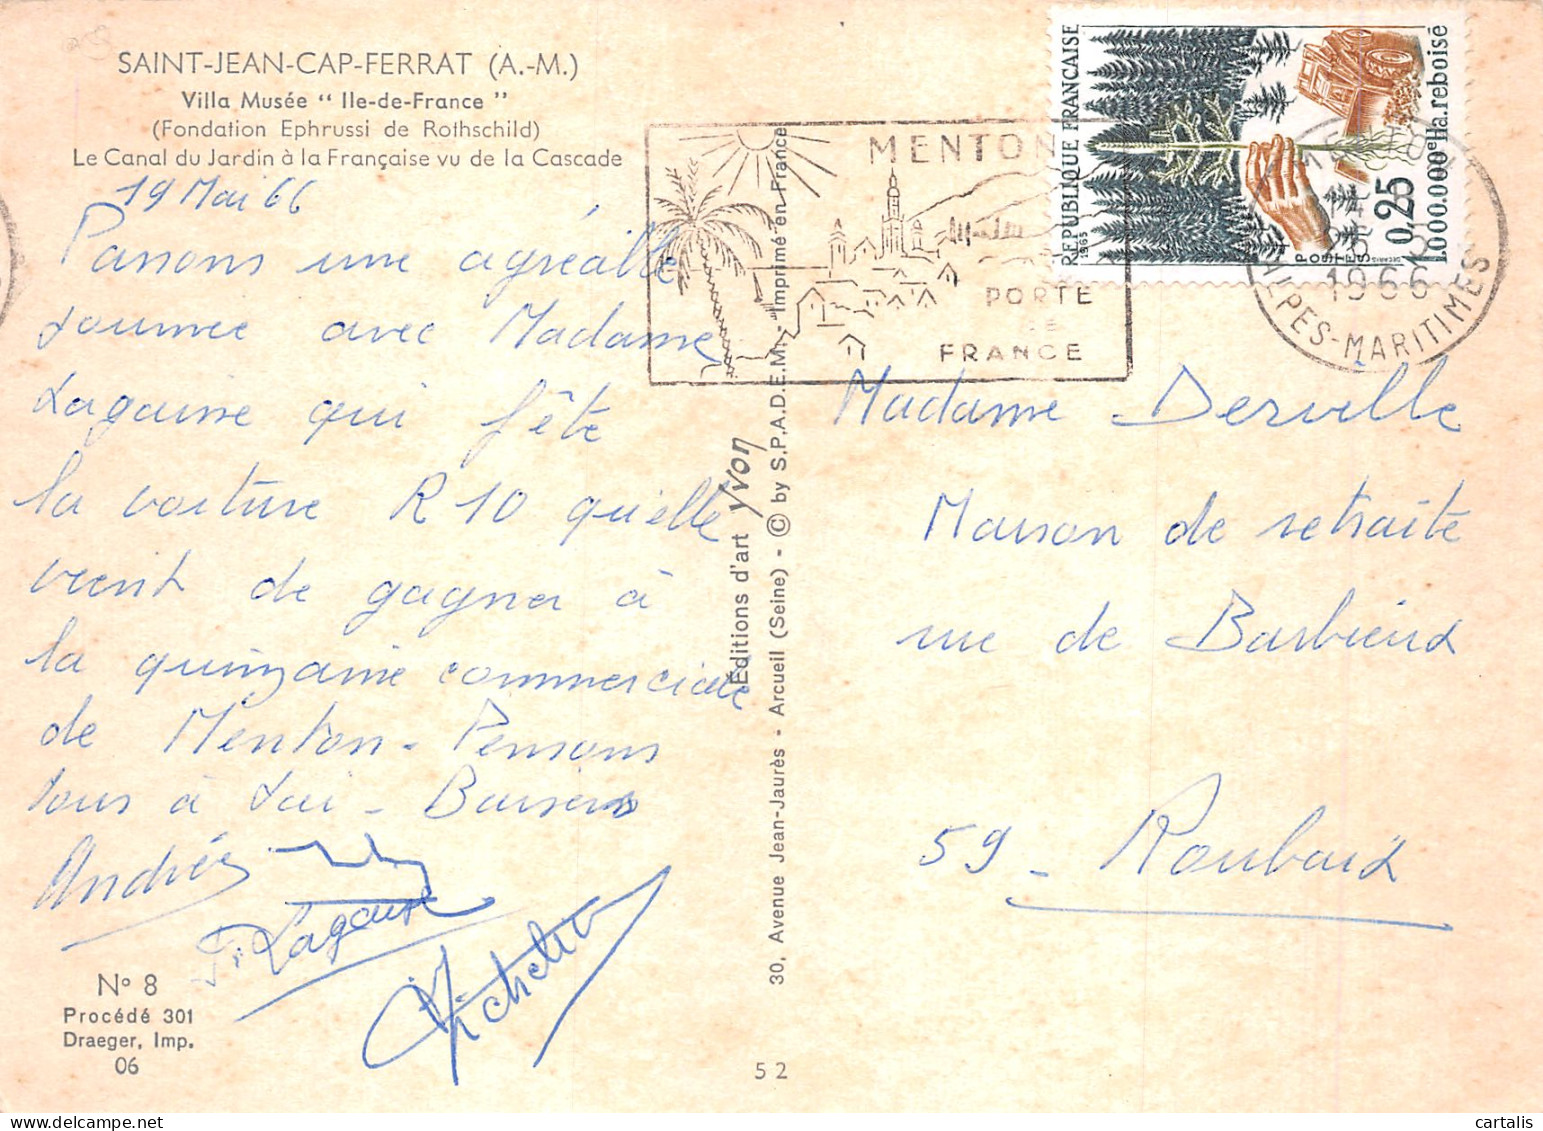 SAINT-JEAN-CAP-FERRAT (A.-M.)
Villa Musée " Ile-de-France "
(Fondation Ephrussi de Rothschild)
Le Canal du Jardin à la Française vu de la Cascade
19 Mai 66
Passons une agréable
journée avec Madame
Lagausie qui fête
la voiture R 10 qu'elle
vient de gagner à
la quinzaine commerciale
de Menton - Pensons
tous à toi - Baisers
Andrée
Lagausie
N° 8
Procédé 301
Draeger, Imp.
06
Editions d'art Yvon
30, Avenue Jean-Jaurès - Arcueil (Seine) - © by S.P.A.D.E.M. - Imprimé en France
52
MENTON
PORTE
DE
FRANCE
REPUBLIQUE FRANÇAISE
1965
POSTES
0,25
1.000.000e Ha. reboisé
DECARIS
MENTON
1966
ALPES-MARITIMES
Madame Derville
Maison de retraite
rue de Barbieux
59 - Roubaix
cartalis